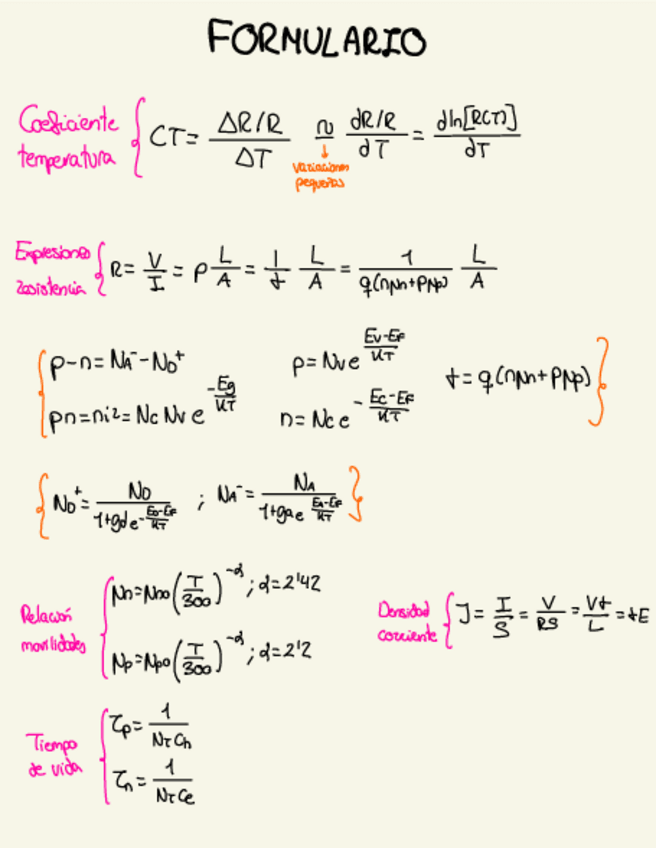 FORMULARIO
Coeficiente temperatura { CT = (ΔR/R)/ΔT ≃ (dR/R)/dT = d ln[R(T)]/dT
↓ variaciones pequeñas
Expresiones resistencia { R = V/I = ρ L/A = 1/σ L/A = 1/(q(nμn+pμp)) L/A
p-n = NA⁻-ND⁺    p = Nv e^((Ev-EF)/KT)    σ = q(nμn+pμp)
pn = ni² = Nc Nv e^(-Eg/KT)    n = Nc e^(-(Ec-EF)/KT)
ND⁺ = ND/(1+gd e^(-(ED-EF)/KT)) ; NA⁻ = NA/(1+ga e^((EA-EF)/KT))
Relación movilidades { μn = μno (T/300)^-α ; α = 2'42
μp = μpo (T/300)^-α ; α = 2'2
Densidad corriente { J = I/S = V/RS = Vσ/L = σE
Tiempo de vida { τp = 1/(NT Ch)
τn = 1/(NT Ce)